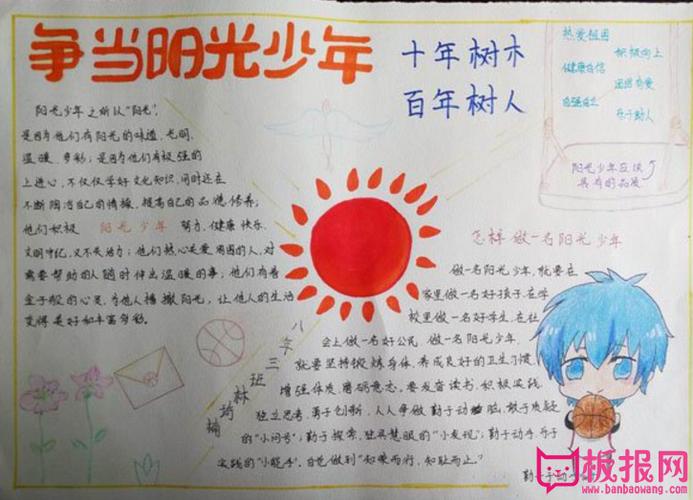 争当阳光少年
十年树木
百年树人
热爱祖国
积极向上
健康自信
团结友爱
自强自立
乐于助人
阳光少年应该
具有的品质
阳光少年之所以“阳光”,
是因为他们有阳光的味道,光明,
温暖,多彩;是因为他们有极强的
上进心,不仅仅学好文化知识,同时还在
不断陶冶自己的情操,提高自己的品德修养;
他们积极 阳光少年 努力,健康快乐,
文明守纪,又不失活力;他们热心关爱周围的人,对
需要帮助的人随时伸出温暖的事;他们有着
金子般的心灵,为他人播撒阳光,让他人的生活
变得美好和丰富多彩。
怎样做一名阳光少年
做一名阳光少年,就要在
家里做一名好孩子,在学
校里做一名好学生,在社
会上做一名好公民,做一名阳光少年,
就要坚持锻炼身体,养成良好的卫生习惯,
增强体质,磨砺意志。要发奋读书,积极实践,
独立思考,勇于创新,人人争做勤于动脑,敢于质疑
的“小问号”;勤于探索,独具慧眼的“小发现”;勤于动手,乐于
实践的“小能手”,自觉做到“知荣而行,知耻而止。”
八年三班林
勤于动
板报网
www.banbaowang.com